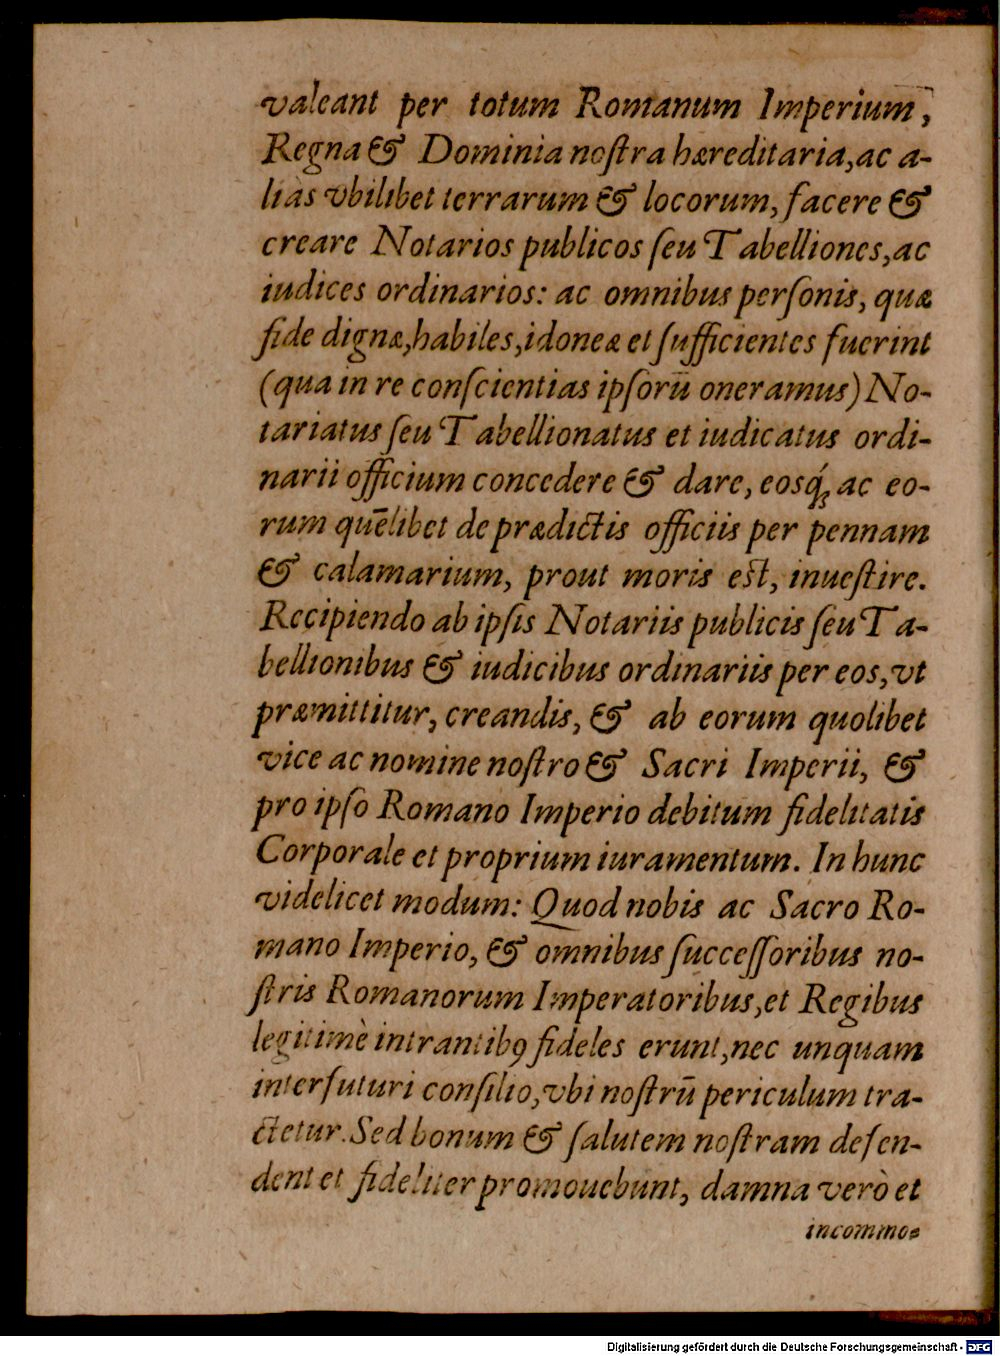 valeant per totum Romanum Imperium,
Regna & Dominia noſtra hæreditaria, ac a-
liàs vbilibet terrarum & locorum, facere &
creare Notarios publicos ſeu Tabelliones, ac
iudices ordinarios: ac omnibus perſonis, quæ
fide dignæ, habiles, idoneæ et ſufficientes fuerint
(qua in re conſcientias ipſorū oneramus) No-
tariatus ſeu Tabellionatus et iudicatus ordi-
narii officium concedere & dare, eosq́; ac eo-
rum quēlibet de prædictis officiis per pennam
& calamarium, prout moris eſt, inueſtire.
Recipiendo ab ipſis Notariis publicis ſeu Ta-
bellionibus & iudicibus ordinariis per eos, vt
præmittitur, creandis, & ab eorum quolibet
vice ac nomine noſtro & Sacri Imperii, &
pro ipſo Romano Imperio debitum fidelitatis
Corporale et proprium iuramentum. In hunc
videlicet modum: Quod nobis ac Sacro Ro-
mano Imperio, & omnibus ſucceſſoribus no-
ſtris Romanorum Imperatoribus, et Regibus
legitimè intrantibꝰ fideles erunt, nec unquam
interfuturi conſilio, vbi noſtrū periculum tra-
ctetur. Sed bonum & ſalutem noſtram defen-
dent et fideliter promouebunt, damna verò et
incommo-
Digitalisierung gefördert durch die Deutsche Forschungsgemeinschaft - DFG